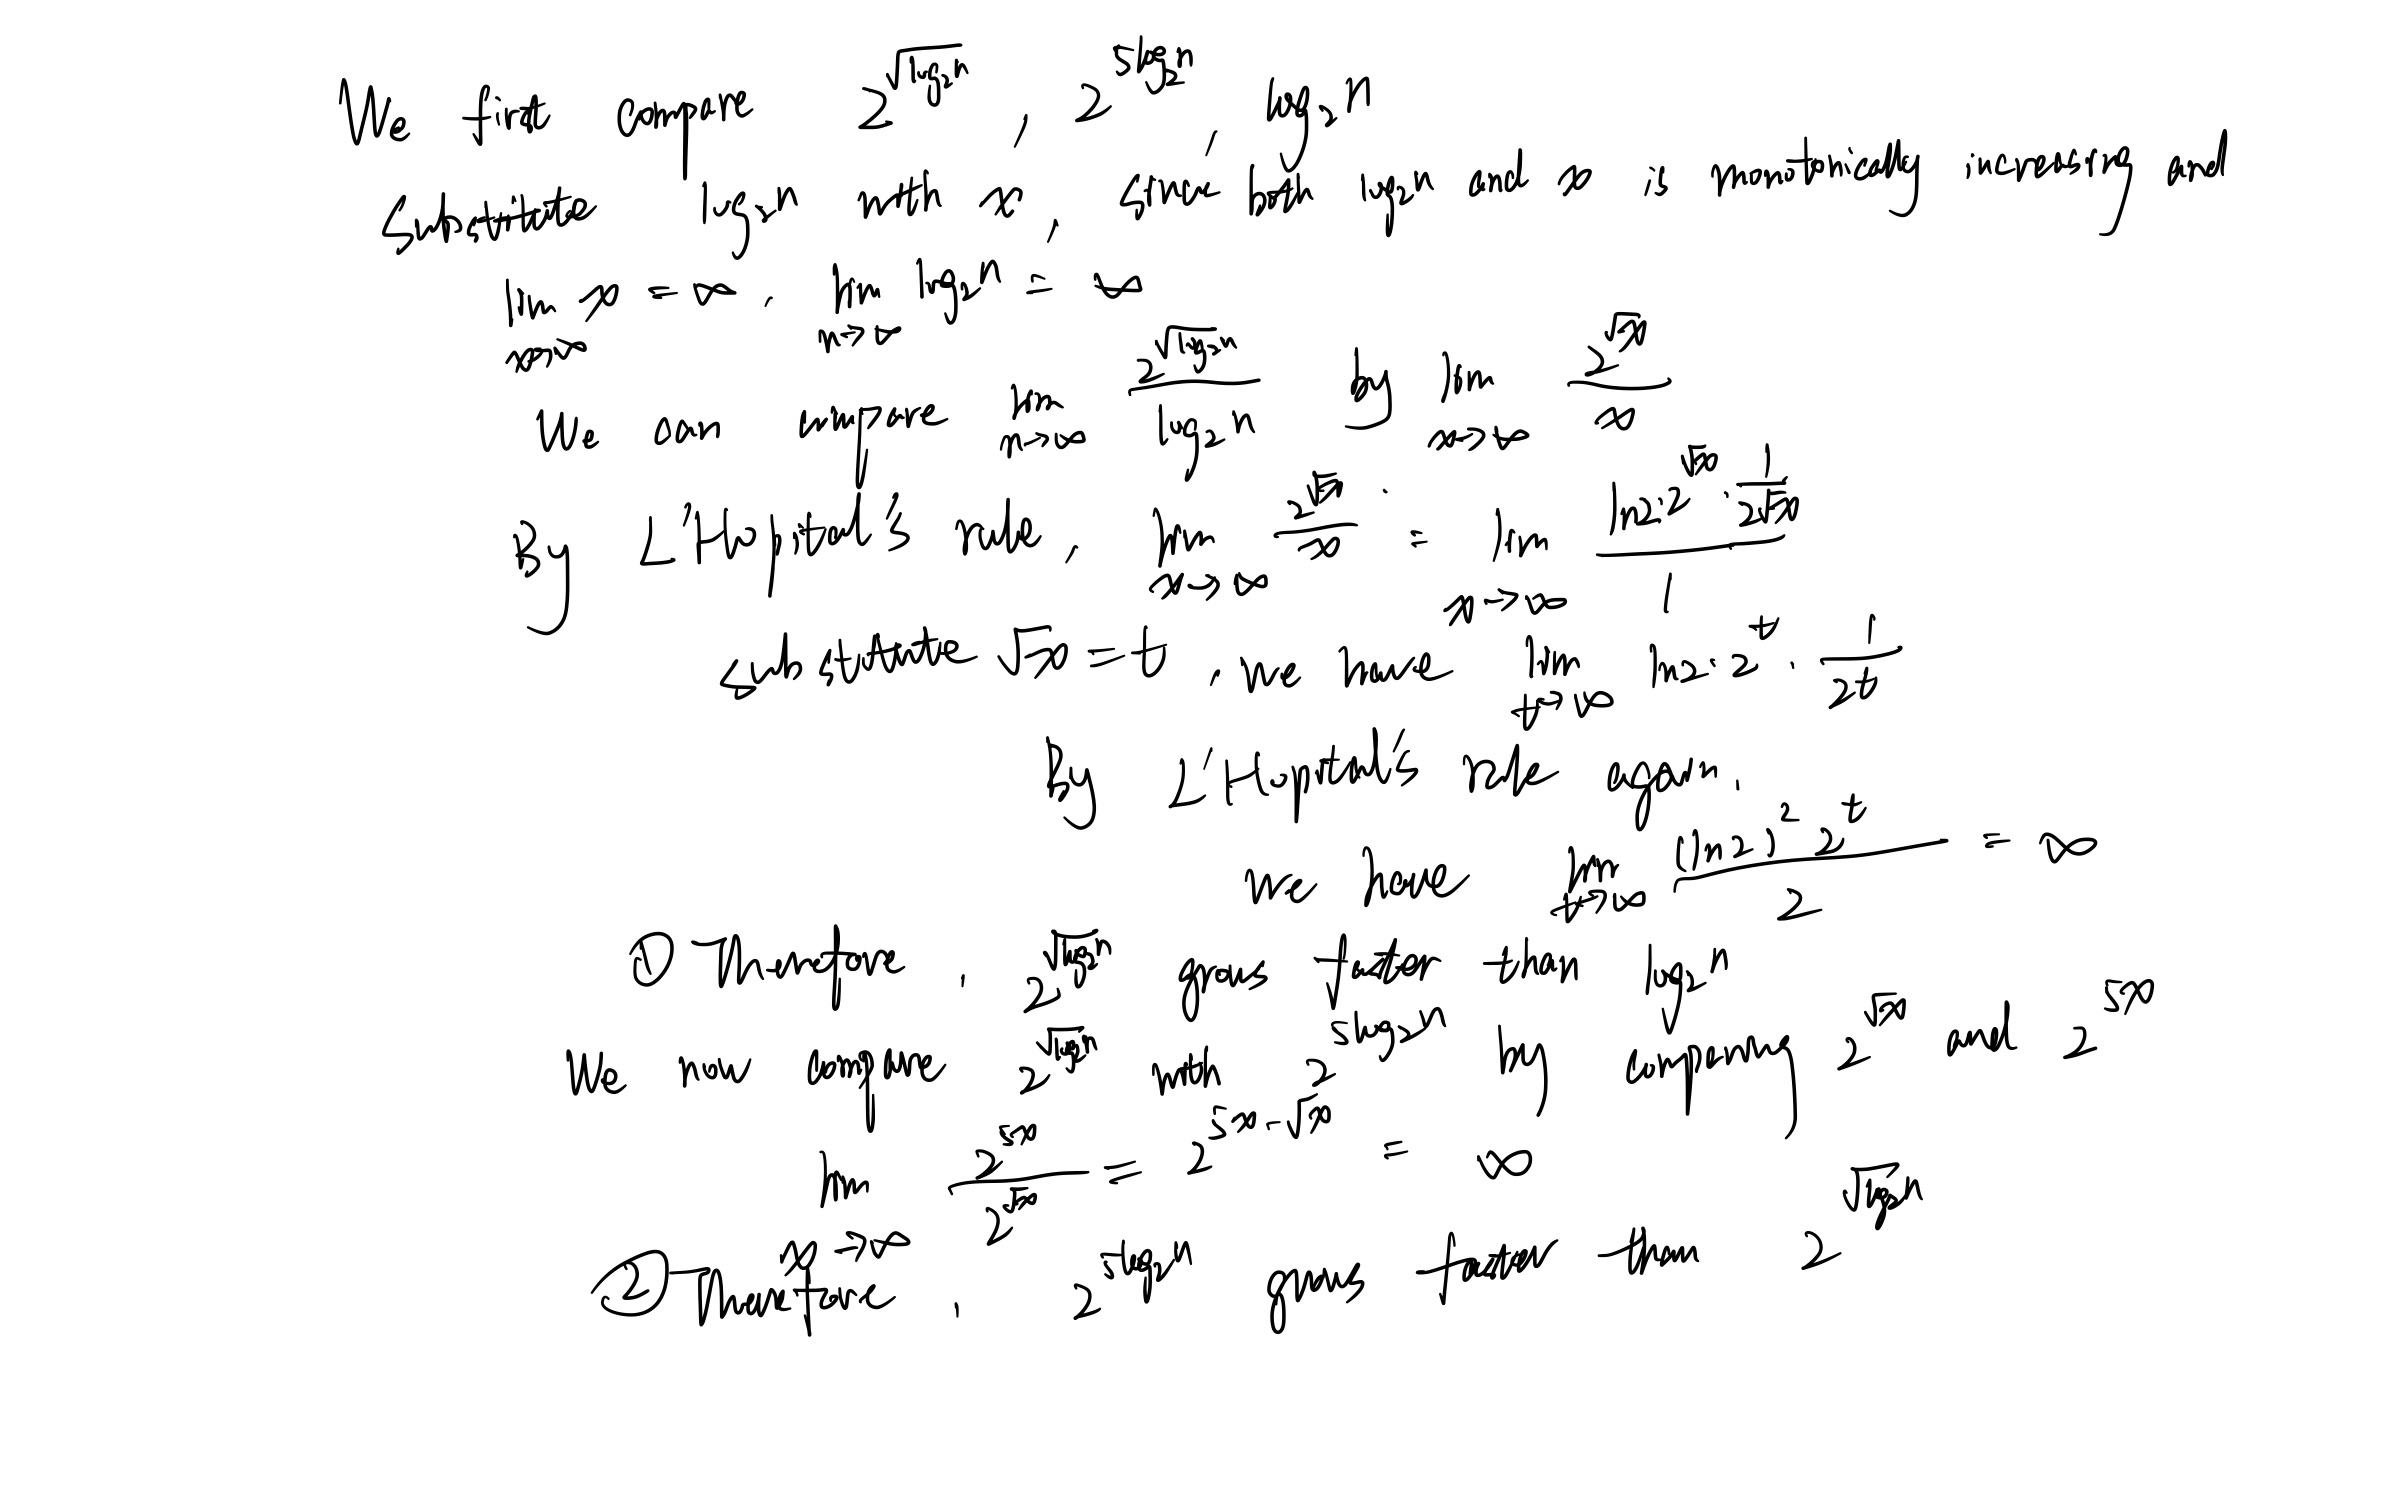 We first compare 2^{√(log₂n)}, 2^{5log₂n}, log₂n
substitute log₂n with x, since both log₂n and x is monotonically increasing and
lim_{x→∞} x = ∞, lim_{n→∞} log₂n = ∞
We can compare lim_{n→∞} 2^{√(log₂n)} / log₂n by lim_{x→∞} 2^{√x} / x
By L'Hopital's rule, lim_{x→∞} 2^{√x} / x = lim_{x→∞} (ln2·2^{√x}·1/(2√x)) / 1
substitute √x = t, we have lim_{t→∞} ln2·2^t·1/(2t)
By L'Hopital's rule again,
we have lim_{t→∞} (ln2)² 2^t / 2 = ∞
① Therefore, 2^{√(log₂n)} grows faster than log₂n
We now compare 2^{√(log₂n)} with 2^{5log₂n} by comparing 2^{√x} and 2^{5x}
lim_{x→∞} 2^{5x} / 2^{√x} = 2^{5x-√x} = ∞
② Therefore, 2^{5log₂n} grows faster than 2^{√(log₂n)}